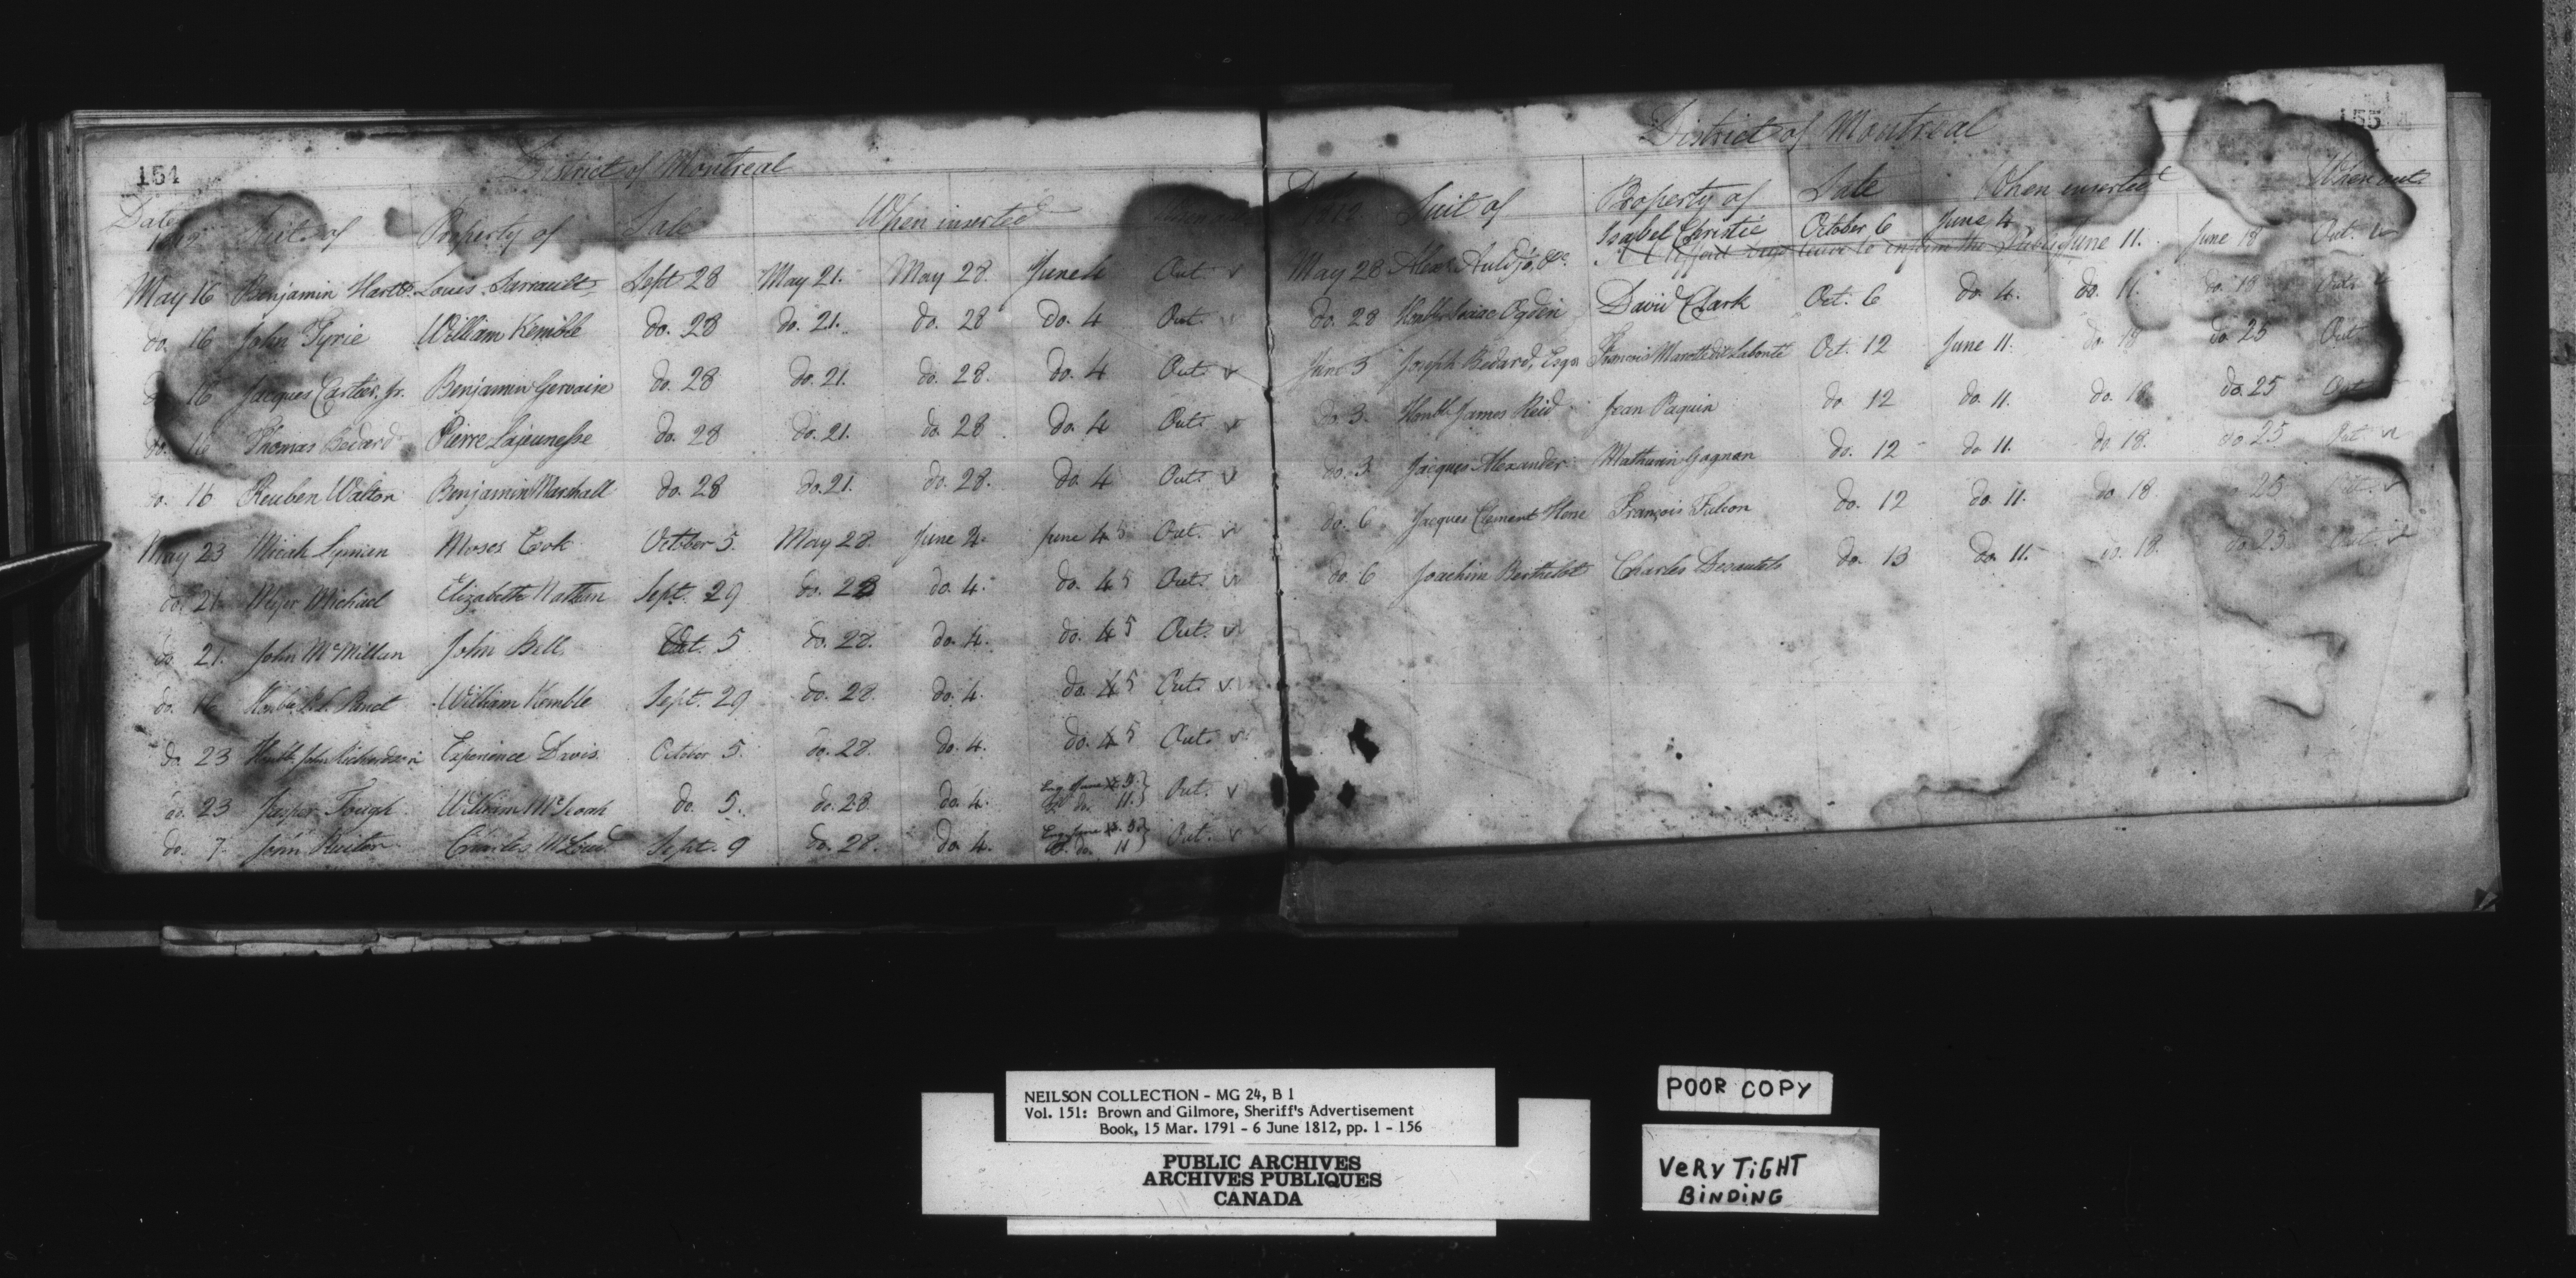 154
District of Montreal
Date 1812 Suit of Property of Sale When inserted
May 16 Benjamin Hart Louis Sarrault Sept 28 May 21. May 28. June 4 Out. v
do. 16 John Pyrie William Kemble do. 28 do. 21. do. 28 do. 4 Out. v
do. 16 Jacques Cartier, Jr. Benjamin Gervaise do. 28 do. 21. do. 28. do. 4 Out. v
do. 16 Thomas Bedard Pierre Lajeunesse do. 28 do. 21. do. 28. do. 4 Out. v
do. 16 Reuben Walton Benjamin Marshall do. 28 do. 21. do. 28. do. 4 Out. v
May 23 Micah Lyman Moses Cook October 5. May 28. June 4. June 4 5 Out. v
do. 21 Myer Michael Elizabeth Nathan Sept. 29 do. 28 do. 4. do. 4 5 Out. v
do. 21. John McMillan John Bell Oct. 5 do. 28. do. 4. do. 4 5 Out. v
do. Honble. Panet William Kemble Sept. 29 do. 28. do. 4. do. 4 5 Out. v
do. 23 Honble. John Richardson Experience Davis October 5. do. 28. do. 4. do. 4 5 Out. v
do. 23 Jasper Tough William do. 5. do. 28 do. 4. June 5. do. 11. Out. v
do. 7. John Ruiter Charles Sept. 9 do. 28. do. 4. June 5. do. 11 Out. v
155
District of Montreal
Date 1812 Suit of Property of Sale When inserted When out
May 28 Alexr. Auldjo, &c. Isabel Christie October 6 June 4 June 11. June 18 Out. v
beg leave to inform the Public
do. 28 Honble. Isaac Ogden David Clark Oct. 6 do. 4. do. 11. do. 18 Out. v
June 3 Joseph Bedard, Esqr. François Marotte dit Labonté Oct. 12 June 11. do. 18 do. 25 Out.
do. 3. Honble. James Reid Jean Paquin do. 12 do. 11. do. 18. do. 25 Out.
do. 3. Jacques Alexander Mathurin Gagnon do. 12 do. 11. do. 18. do. 25 Out. v
do. 6 Jacques Clement Herse François Falcon do. 12 do. 11. do. 18. do. 25 Out. v
do. 6 Joachim Berthelot Charles Desautels do. 13 do. 11. do. 18. do. 25 Out. v
NEILSON COLLECTION - MG 24, B 1
Vol. 151: Brown and Gilmore, Sheriff's Advertisement
Book, 15 Mar. 1791 - 6 June 1812, pp. 1 - 156
PUBLIC ARCHIVES
ARCHIVES PUBLIQUES
CANADA
POOR COPY
VERY TIGHT
BINDING